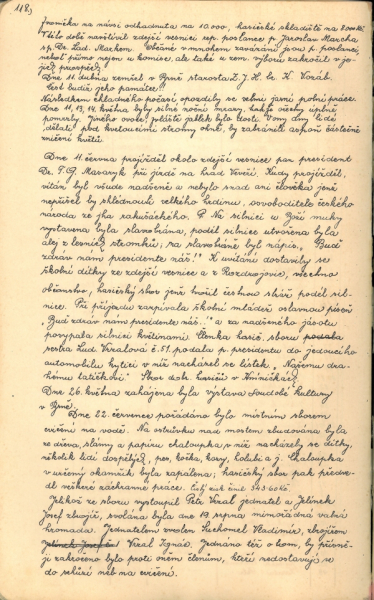 118.)
Javorníka na návsi odhadnuta na 10.000, hasičské skladiště na 8000 Kč.
V této době navštívil zdejší vesnici rep. poslanec p. Jaroslav Marcha
sp. Dr. Lad. Mackem. Občané v mnohém zavázáni jsou p. poslanci,
neboť přímo nejen u komise, ale také u zem. výboru zakročil v je-
jich prospěch.
Dne 11. dubna zemřel v Brně starosta Z. J. H. br. K. Voráb.
Čest budiž jeho památce!
Následkem chladného počasí opozdily se velmi jarní polní práce.
Dne 11, 13, 14 května, byly silné noční mrazy, takže všechy úplně
pomrzly. Jiného ovoce, zvláště jablek bylo dosti. V ony dny lidé
"dělali" pod kvetoucími stromy ohně, by zabránili aspoň částečně
zničení květů.
Dne 11. června projížděl okolo zdejší vesnice pan president
Dr. T. G. Masaryk při jízdě na hrad Veveří. Kudy projížděl,
vítán byl všude nadšeně a nebylo snad ani člověka jenž
nepřišel by shlédnouti velkého hrdinu, osvoboditele českého
národa ze jha rakouského. Na silnici u Boží muky
vystavena byla slavobrána, podél silnice utvořena byla
alej z lesních stromků, na slavobráně byl nápis "Buď
zdráv nám presidente náš!" K uvítání dostavily se
školní dítky ze zdejší vesnice a z Rozdrojovic, všechno
občanstvo, hasičský sbor jenž tvořil čestnou stráž podél sil-
nice. Při příjezdu zazpívala školní mládež oslavnou píseň
"Buď zdráv nám presidente náš!" a za nadšeného jásotu
posypala silnici květinami. Členka hasič. sboru podala
sestra Lud. Kralová č. 51. podala p. presidentu do jedoucího
automobilu kytici v níž nacházel se lístek "Našemu dra-
hému tatíčkovi" Sbor dob. hasičů v Kníničkách.
Dne 26. května zahájena byla výstava Soudobé Kultury
v Brně.
Dne 22. července pořádáno bylo místním sborem
cvičení na vodě. Na ostrůvku nad mostem zbudována byla
ze dřeva, slámy a papíru chaloupka, v níž nacházely se dítky,
několik lidí dospělých, pes, kočka, kozy, holubi a j. Chaloupka
v určený okamžik byla zapálena; hasičský sbor pak předve-
dl veškeré záchranné práce. Čistý zisk činil 343.60 Kč.
Jelikož ze sboru vystoupil Petr Kral jednatel a Jelínek
Josef zbrojíř, svolána byla dne 19. srpna mimořádná valná
hromada. Jednatelem zvolen Suchomel Vladimír, zbrojířem
Jelínek Josef Kral Ignác. Jednáno též o tom, by přísně-
ji zakročeno bylo proti oněm členům, kteří nedostavují se
do schůzí neb na cvičení.